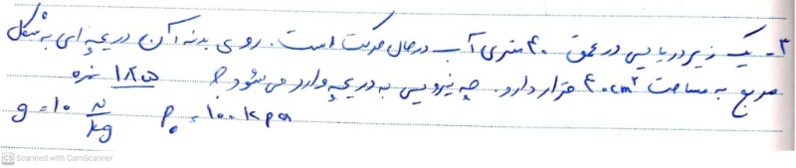 ۳- یک زیردریایی در عمق ۴۰ متری آب در حال حرکت است. روی بدنه آن دریچه ای به شکل
مربع به مساحت ۴۰cm² قرار دارد. چه نیرویی به دریچه وارد می شود؟ ۱/۲۵ نمره
g = 10 N/kg P₀ = 100 kPa
CS Scanned with CamScanner